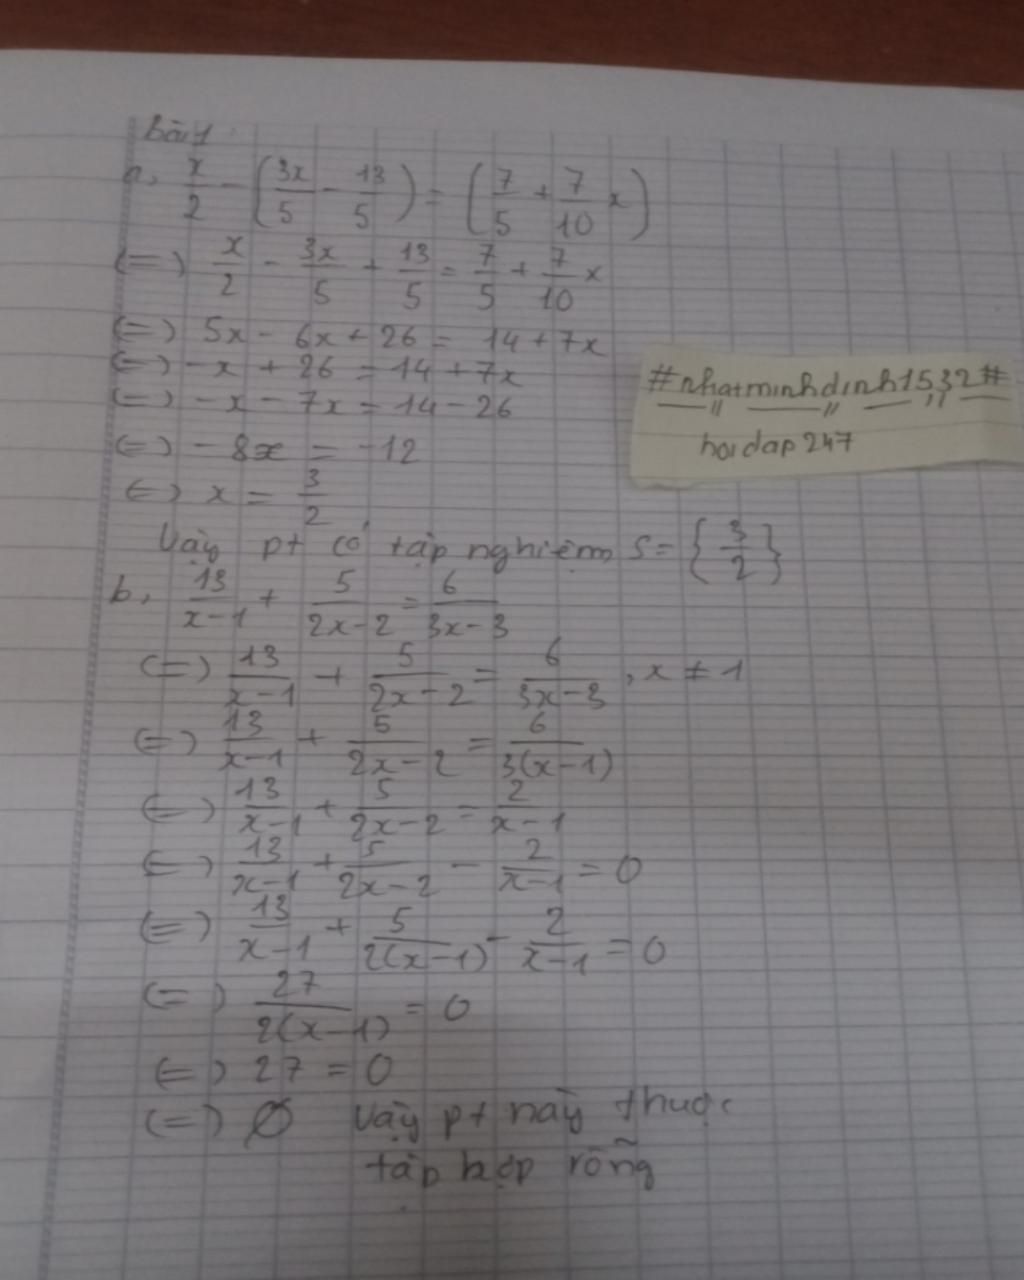 Bài 1
a, x/2 - (3x/5 - 13/5) = (7/5 + 7/10 x)
(=) x/2 - 3x/5 + 13/5 = 7/5 + 7/10 x
(=) 5x - 6x + 26 = 14 + 7x
(=) -x + 26 = 14 + 7x
(=) -x - 7x = 14 - 26
(=) -8x = -12
(=) x = 3/2
Vậy pt có tập nghiệm S = {3/2}
#nhatminhdinh1532#
hoidap247
b, 13/(x-1) + 5/(2x-2) = 6/(3x-3)
(=) 13/(x-1) + 5/(2x-2) = 6/(3x-3), x ≠ 1
(=) 13/(x-1) + 5/(2x-2) = 6/(3(x-1))
(=) 13/(x-1) + 5/(2x-2) = 2/(x-1)
(=) 13/(x-1) + 5/(2x-2) - 2/(x-1) = 0
(=) 13/(x-1) + 5/(2(x-1)) - 2/(x-1) = 0
(=) 27/(2(x-1)) = 0
(=) 27 = 0
(=) Ø Vậy pt này thuộc
tập hợp rỗng